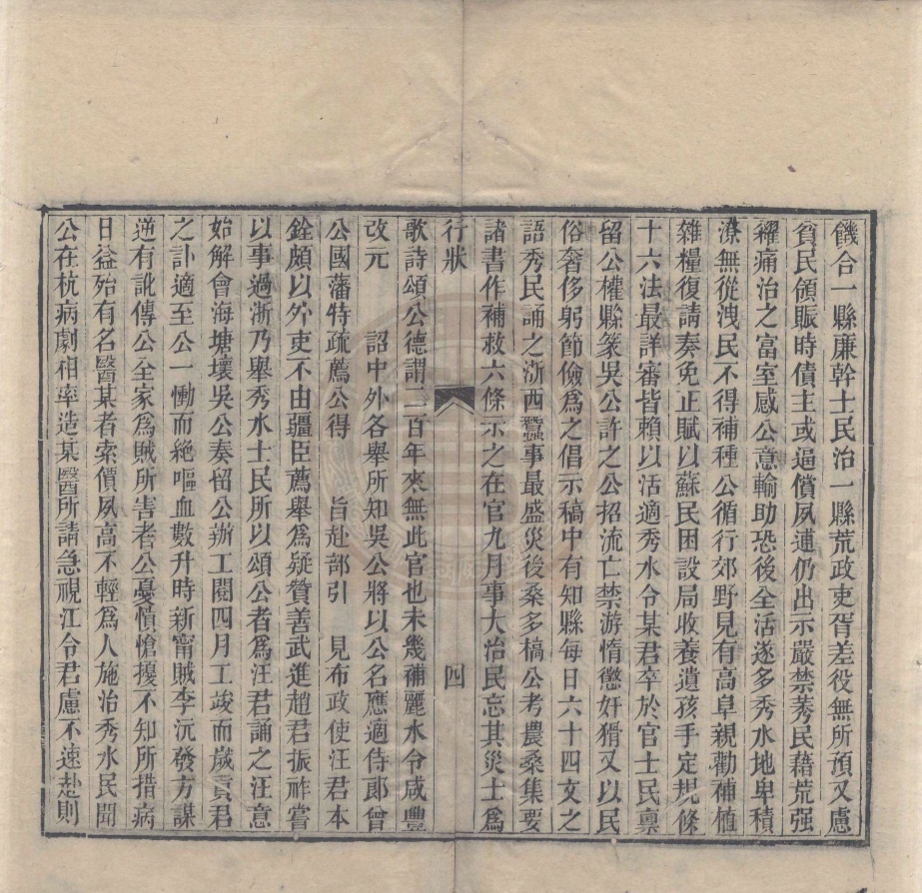 饑合一縣廉幹士民治一縣荒政吏胥差役無所預又慮
貧民領賑時債主或逼償夙逋仍出示嚴禁莠民藉荒强
糴痛治之富室感公意輸助恐後全活遂多秀水地卑積
潦無從洩民不得補種公循行郊野見有高阜親勸補植
雜糧復請奏免正賦以蘇民困設局收養遺孩手定規條
十六法最詳審皆賴以活適秀水令某君卒於官士民稟
留公權縣篆吳公許之公招流亡禁游惰懲奸猾又以民
俗奢侈躬節儉爲之倡示稿中有知縣每日六十四文之
語秀民誦之浙西蠶事最盛災後桑多槁公考農桑集要
諸書作補救六條示之在官九月事大治民忘其災士爲
行狀
四
歌詩頌公德謂二百年來無此官也未幾補麗水令咸豐
改元 詔中外各舉所知吳公將以公名應適侍郎曾
公國藩特疏薦公得 旨赴部引 見布政使汪君本
銓頗以外吏不由疆臣薦舉爲疑贊善武進趙君振祚嘗
以事過浙乃舉秀水士民所以頌公者爲汪君誦之汪意
始解會海塘壞吳公奏留公辦工閱四月工竣而歲貢君
之訃適至公一慟而絕嘔血數升時新甯賊李沅發方謀
逆有訛傳公全家爲賊所害者公憂憤愴擾不知所措病
日益殆有名醫某者索價夙高不輕爲人施治秀水民聞
公在杭病劇相率造某醫所請急視江令君慮不速赴則